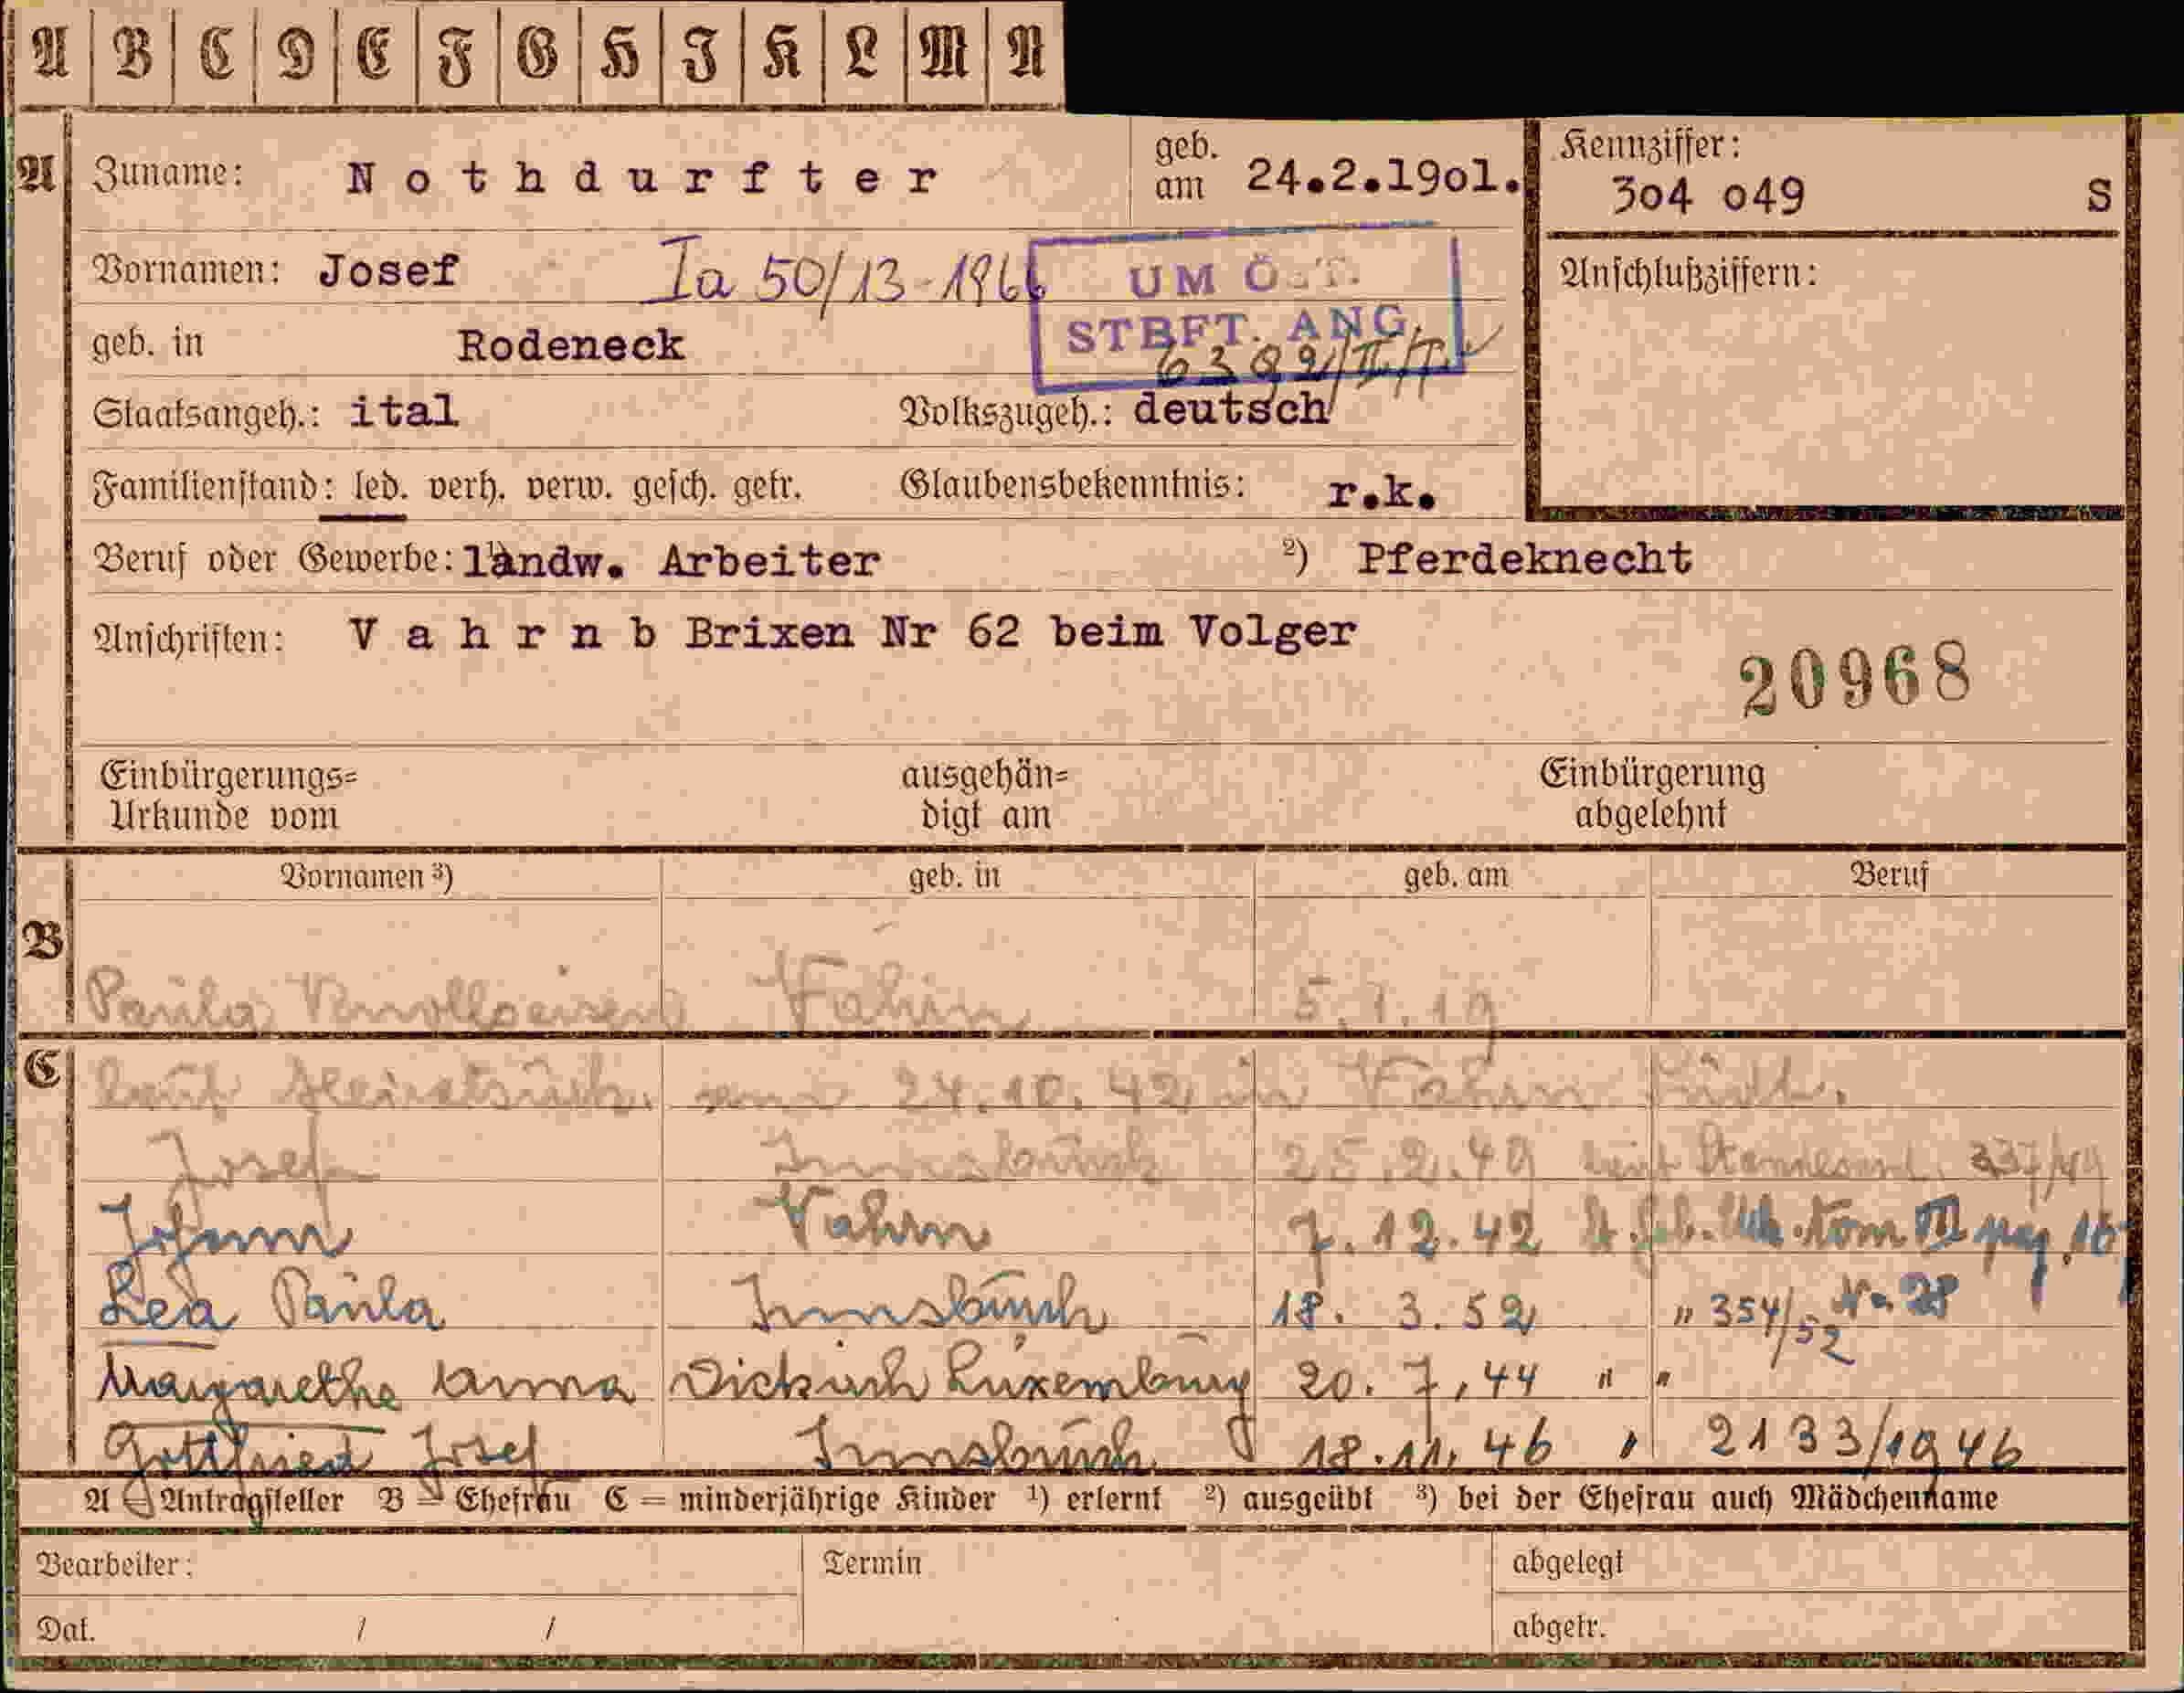 A B C D E F G H I K L M N
A Zuname: Nothdurfter geb. am 24.2.19o1. Kennziffer: 3o4 o49 S
Vornamen: Josef Ia 50/13-1966 UM ÖST. STBFT. ANG. Anschlußziffern:
geb. in Rodeneck
Staatsangeh.: ital Volkszugeh.: deutsch
Familienstand: led. verh. verw. gesch. getr. Glaubensbekenntnis: r.k.
Beruf oder Gewerbe: ¹) landw. Arbeiter ²) Pferdeknecht
Anschriften: Vahrn b Brixen Nr 62 beim Volger
20968
Einbürgerungs= ausgehän= Einbürgerung
Urkunde vom digt am abgelehnt
Vornamen ³) geb. in geb. am Beruf
B
Paula Vahrn 5.1.19
C laut Heiratsurk. 24.10.42 in Vahrn
Josef Innsbruck 25.2.49 laut Standesamt 337/49
Johann Vahrn 7.12.42 III pag. 16
Lea Paula Innsbruck 18. 3. 52 " 354/52 No 28
Margarethe Anna Diekirch Luxemburg 20. 7. 44 " "
Gottfried Josef Innsbruck 18.11. 46 " 2133/1946
A = Antragsteller B = Ehefrau C = minderjährige Kinder ¹) erlernt ²) ausgeübt ³) bei der Ehefrau auch Mädchenname
Bearbeiter: Termin abgelegt
Dat. / / abgetr.